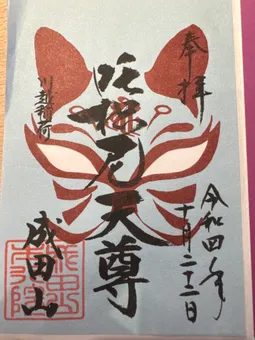 奉拝
令和四年
十月二十二日
吒枳尼天尊
川越別院
成田山